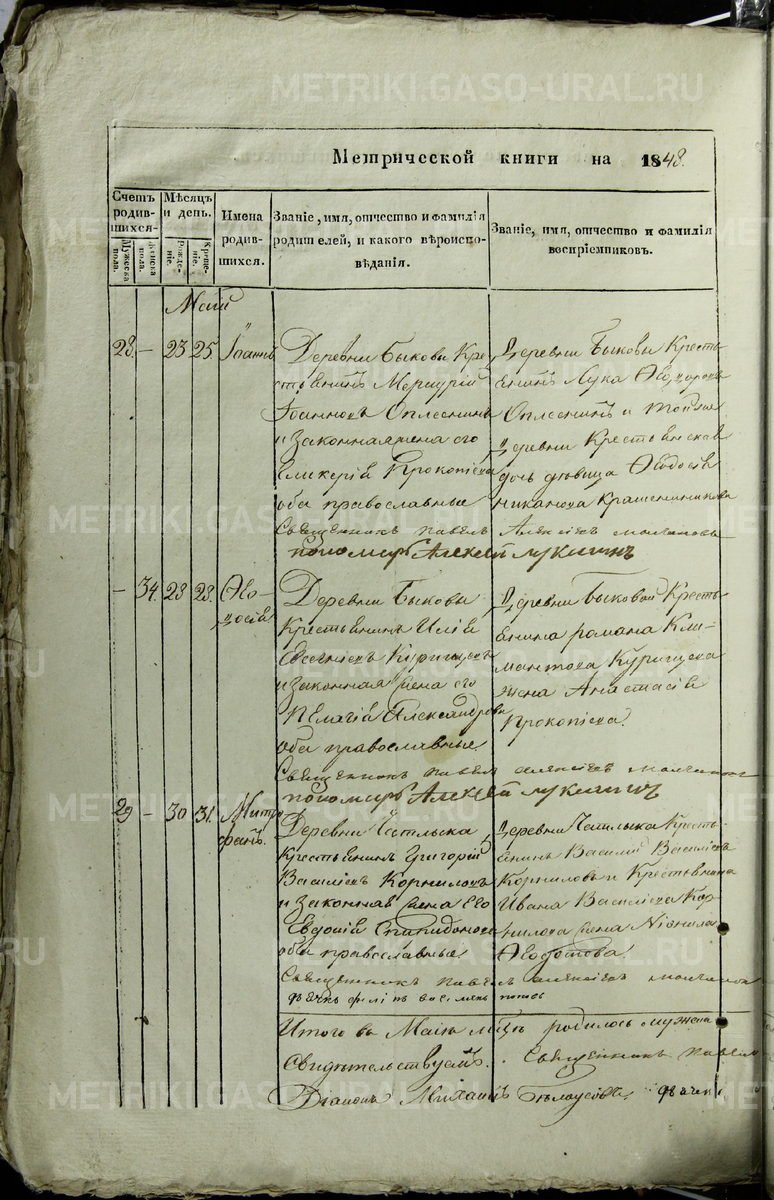 METRIKI.GASO-URAL.RU
Метрической книги на 1848.
Счетъ родив-шихся.
Мужеска пола.
Женска пола.
Мѣсяцъ и день.
Рожде-ніе.
Креще-ніе.
Имена родив-шихся.
Званіе, имя, отчество и фамилія родителей, и какого вѣроиспо-вѣданія.
Званіе, имя, отчество и фамилія воспріемниковъ.
Май
28. — 23 25 Іоаннъ
Деревни Быковы Кре-
стьянинъ Меркурій
Іоанновъ Оплеснинъ
и законная жена его
Гликерія Прокопіева
оба православные
Деревни Быковы Кресть-
янинъ Лука Ѳеодоровъ
Оплеснинъ и той же
Деревни Крестьянская
дочь дѣвица Ѳеодосія
Никанова Крашенинникова
Священникъ Павелъ Алексіевъ
пономарь Алексей Лукиинъ
— 34. 28 28. Ѳео-
досія
Деревни Быковы
Крестьянинъ Илія
и законная жена его
Пелагія Александрова
оба православные
Деревни Быковой Кресть-
янина Романа Кли-
мантова
жена Анастасія
Прокопіева.
Священникъ Павелъ Алексіевъ
пономарь Алексей Лукиинъ
29 — 30 31. Митро-
фанъ.
Деревни
Крестьянинъ Григорій
Василіевъ Корниловъ
и законная жена его
Евдокія Спиридонова
оба православные
Деревни Кресть-
янинъ Василій Василіевъ
Корниловъ и Крестьянина
Ивана Василіева Кор-
нилова жена
Ѳедотова.
Священникъ Павелъ Алексіевъ
Итого въ Маіѣ м-цѣ родилось мужеска
Свидѣтельствуемъ. Священникъ Павелъ
Діаконъ Михаилъ Бѣлоусовъ, дьячк